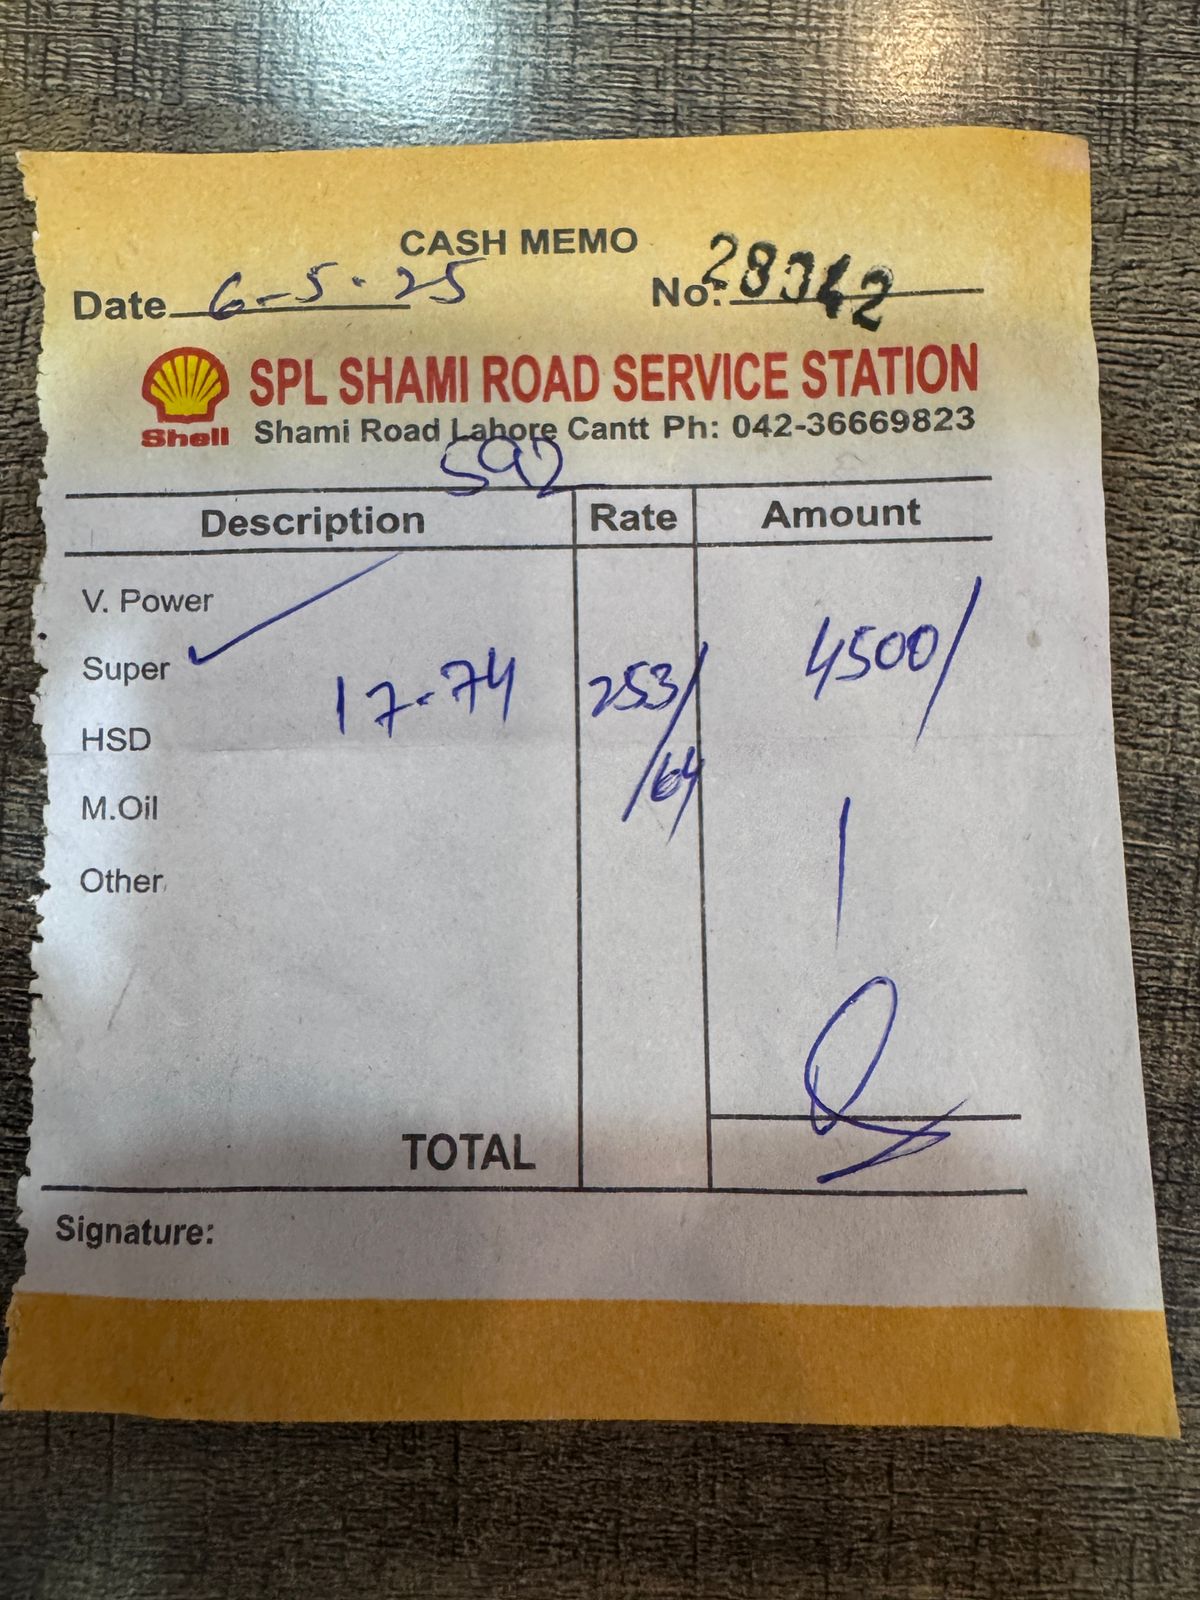 CASH MEMO
Date 6-5-25 No. 28342
Shell SPL SHAMI ROAD SERVICE STATION
Shami Road Lahore Cantt Ph: 042-36669823
592
Description Rate Amount
V. Power
Super 17-74 253/64 4500/
HSD
M.Oil
Other
TOTAL
Signature: